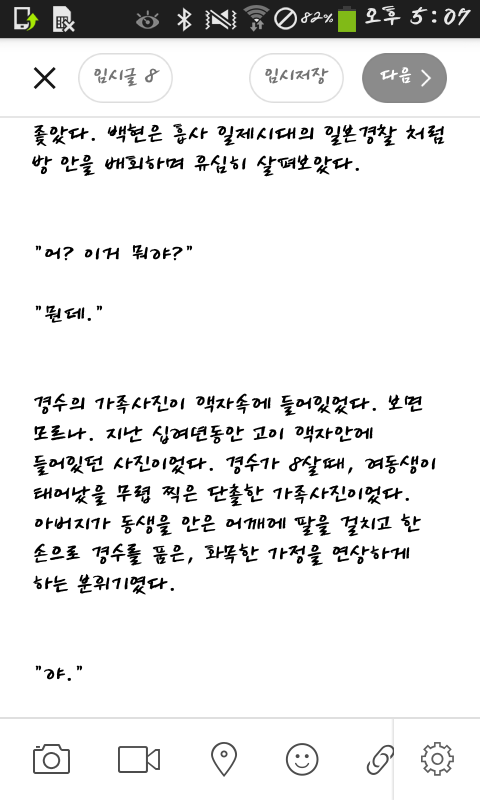 82% 오후 5:07
임시글 8 임시저장 다음
좆았다. 백현은 흡사 일제시대의 일본경찰 처럼
방 안을 배회하며 유심히 살펴보았다.
"어? 이거 뭐야?"
"뭔데."
경수의 가족사진이 액자속에 들어있었다. 보면
모르나. 지난 십여년동안 고이 액자안에
들어있던 사진이었다. 경수가 8살때, 여동생이
태어났을 무렵 찍은 단촐한 가족사진이었다.
아버지가 동생을 안은 어깨에 팔을 걸치고 한
손으로 경수를 품은, 화목한 가정을 연상하게
하는 분위기였다.
"야."